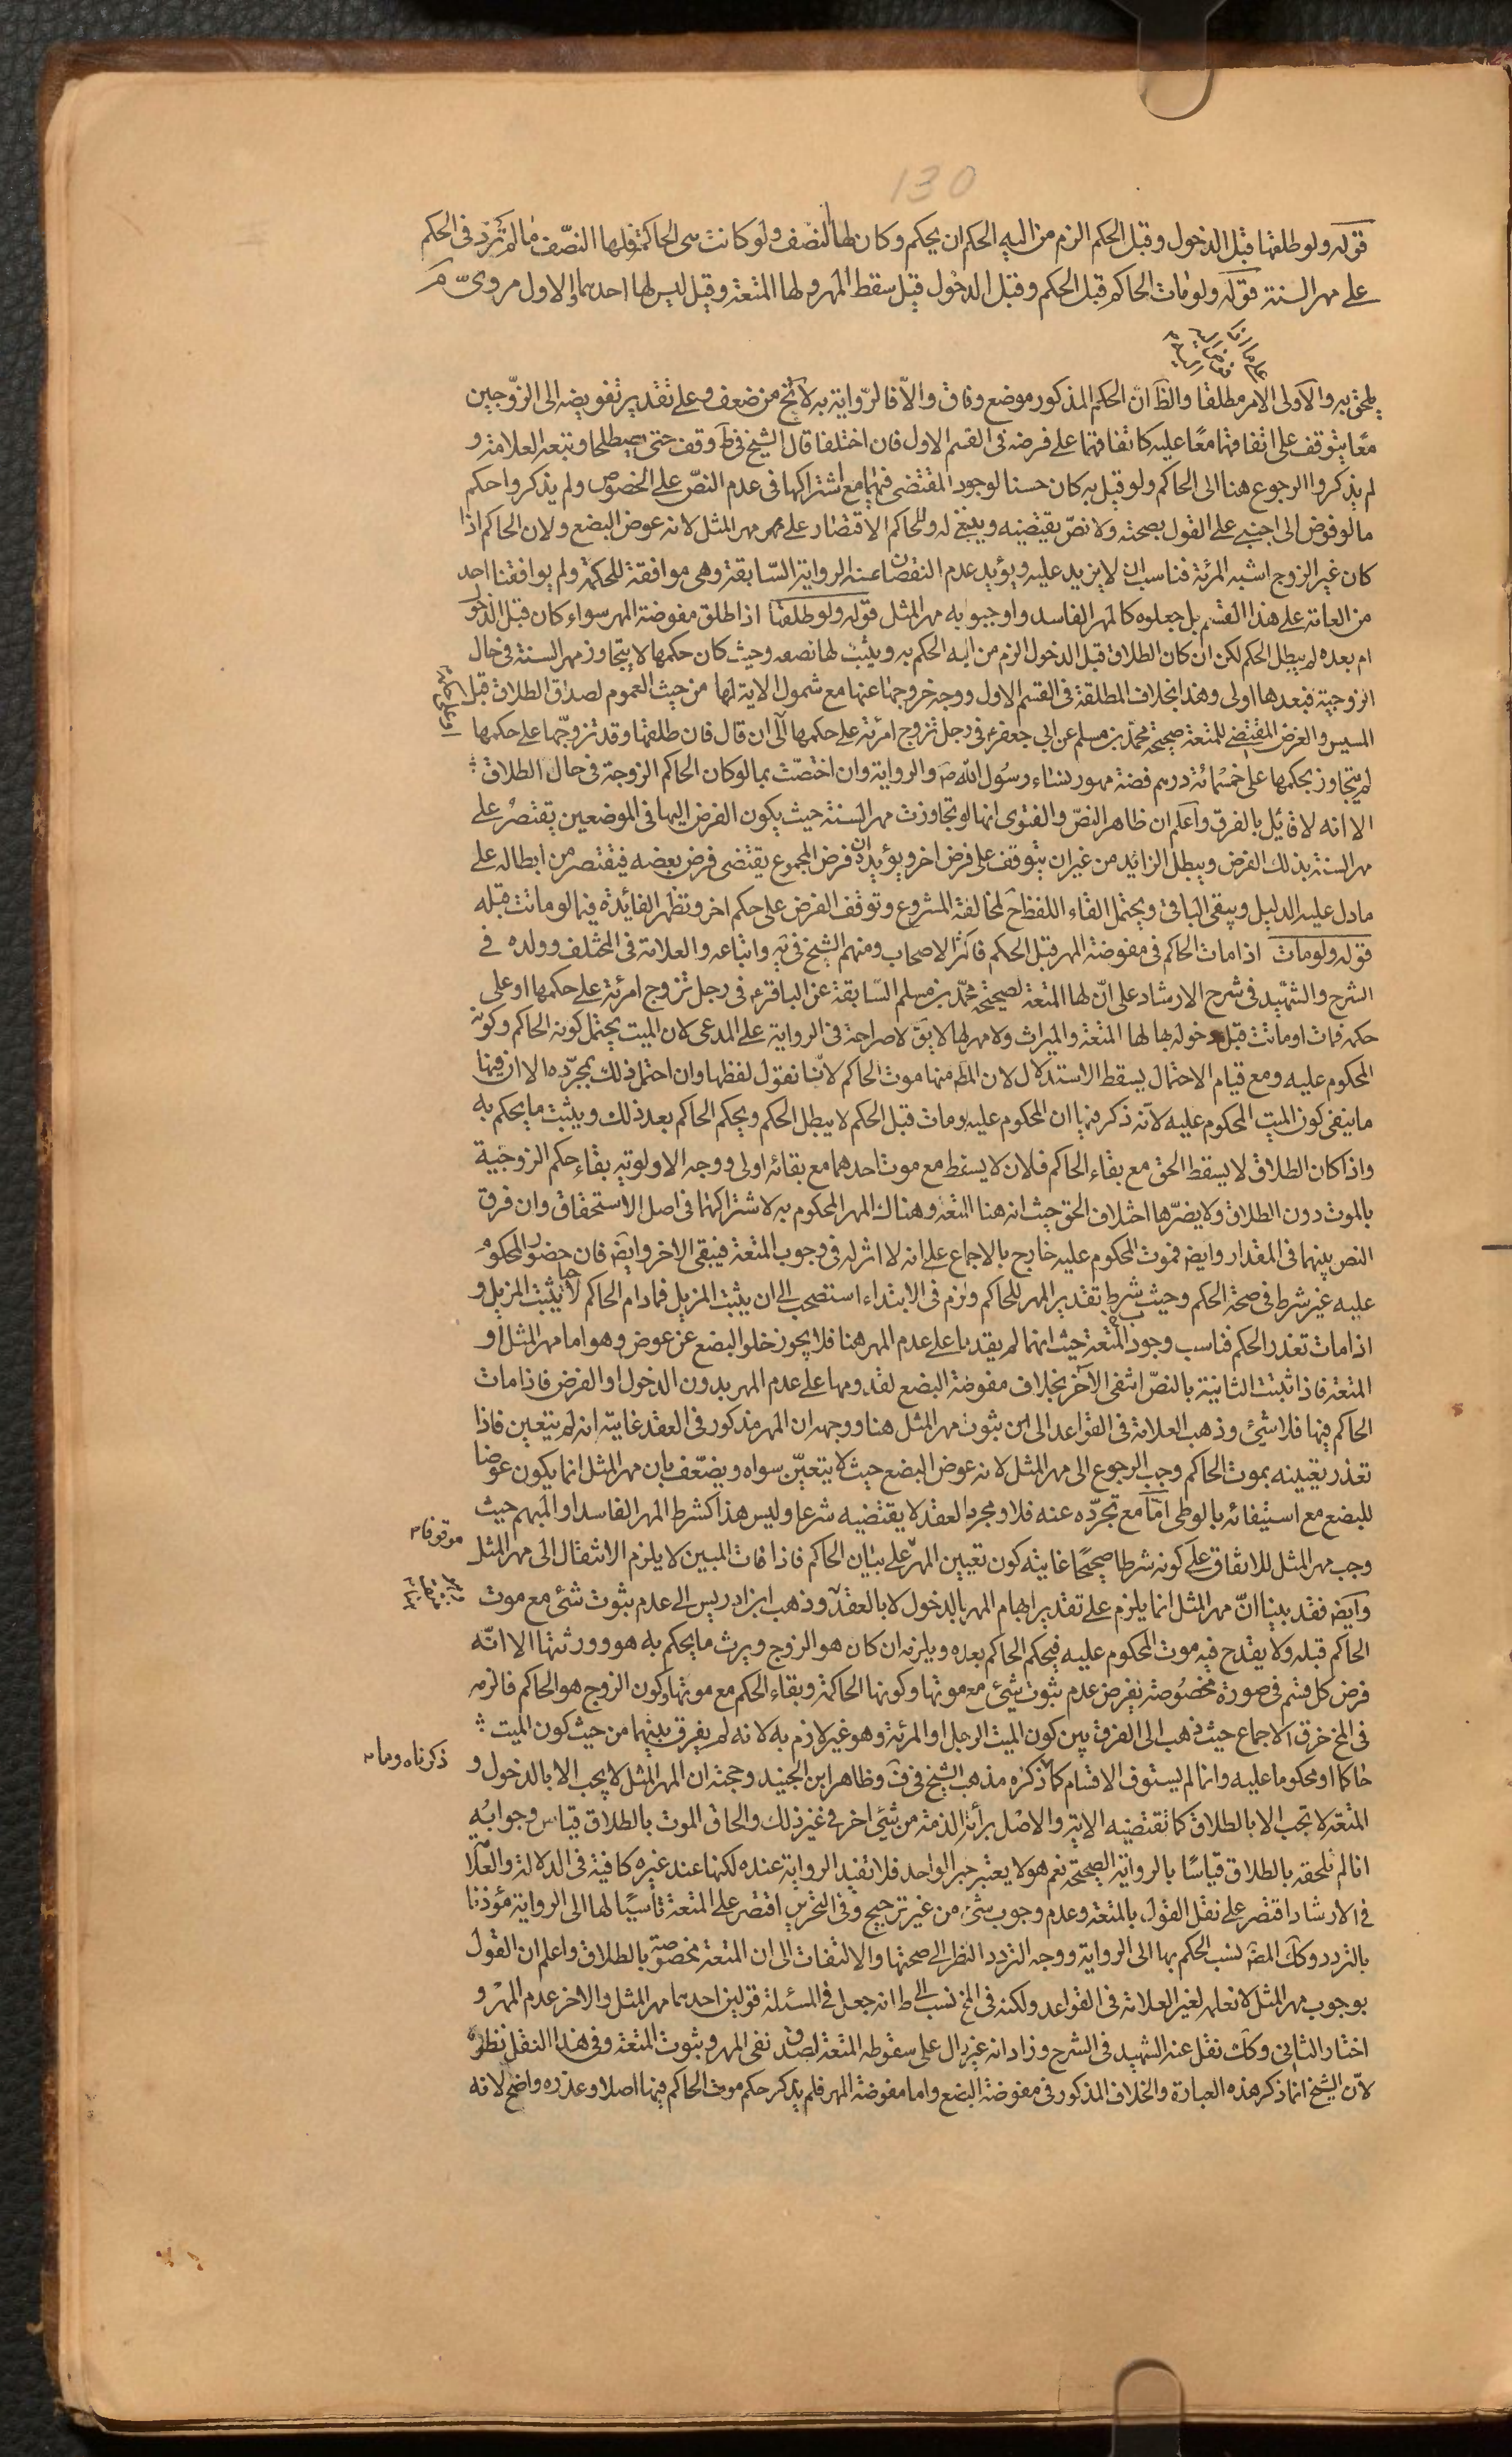 130
قوله ولو طلقها قبل الدخول وقبل الحكم الزم من اليه الحكم ان يحكم وكان لها النصف ولو كانت هى الحاكمة فلها النصف ما لم تزد فى الحكم
على مهر السنة قوله ولو مات الحاكم قبل الحكم وقبل الدخول قيل سقط المهر ولها المتعة وقيل ليس لها احدهما والاول مروى
يلحق به والاولى الامر مطلقا والظ ان الحكم المذكور موضع وفاق والا فالرواية به لا تخ من ضعف وعلى تقدير تفويضه الى الزوجين
معا يتوقف على اتفاقهما معا عليه كاتفاقهما على فرضه فى القسم الاول فان اختلفا قال الشيخ فى ط وقف حتى يصطلحا وتبعه العلامة و
لم يذكروا الرجوع هنا الى الحاكم ولو قيل به كان حسنا لوجود المقتضى فيهما مع اشتراكهما فى عدم النص على الخصوص ولم يذكروا حكم
ما لو فوض الى اجنبى على القول بصحته ولا نص يقتضيه وينبغى له وللحاكم الاقتصار على مهر المثل لانه عوض البضع ولان الحاكم اذا
كان غير الزوج اشبه المرئة فناسب ان لا يزيد عليه ويؤيد عدم النقصان عنه الرواية السابقة وهى موافقة للحكمة ولم يوافقنا احد
من العامة على هذا القسم بل جعلوه كالمهر الفاسد واوجبوا به مهر المثل قوله ولو طلقها اذا طلق مفوضة المهر سواء كان قبل الدخول
ام بعده لم يبطل الحكم لكن ان كان الطلاق قبل الدخول الزم من اليه الحكم به ويثبت لها نصفه وحيث كان حكمها لا يتجاوز مهر السنة فى حال
الزوجية فبعدها اولى وهذا بخلاف المطلقة فى القسم الاول ووجه خروجها عنها مع شمول الاية لها من حيث العموم لصداق الطلاق قبل
المسيس والفرض المقتضى للمتعة صحيحة محمد بن مسلم عن ابى جعفر ع فى رجل تزوج امرئة على حكمها الى ان قال فان طلقها وقد تزوجها على حكمها
لم يتجاوز بحكمها على خمسمائة درهم فضة مهور نساء رسول الله ص والرواية وان اختصت بما لو كان الحاكم الزوجة فى حال الطلاق
الا انه لا قائل بالفرق واعلم ان ظاهر النص والفتوى انها لو تجاوزت مهر السنة حيث يكون الفرض اليها فى الموضعين يقتصر على
مهر السنة بذلك الفرض ويبطل الزائد من غير ان يتوقف على فرض اخر ويؤيد ان فرض المجموع يقتضى فرض بعضه فيقتصر من ابطاله على
ما دل عليه الدليل ويبقى الباقى ويحتمل الغاء اللفظ ح لمخالفة المشروع وتوقف الفرض على حكم اخر وتظهر الفائدة فيما لو ماتت قبله
قوله ولو مات اذا مات الحاكم فى مفوضة المهر قبل الحكم فاكثر الاصحاب ومنهم الشيخ فى يه واتباعه والعلامة فى المختلف وولده فى
الشرح والشهيد فى شرح الارشاد على ان لها المتعة لصحيحة محمد بن مسلم السابقة عن الباقر ع فى رجل تزوج امرئة على حكمها او على
حكمه فمات او ماتت قبل دخوله بها لها المتعة والميراث ولا مهر لها لا يق لا صراحة فى الرواية على المدعى لان الميت يحتمل كونه الحاكم وكونه
المحكوم عليه ومع قيام الاحتمال يسقط الاستدلال لان المط منها موت الحاكم لانا نقول لفظها وان احتمل ذلك بمجرده الا ان فيها
ما ينفى كون الميت المحكوم عليه لانه ذكر فيها ان المحكوم عليه لو مات قبل الحكم لا يبطل الحكم ويحكم الحاكم بعد ذلك ويثبت ما يحكم به
واذا كان الطلاق لا يسقط الحق مع بقاء الحاكم فلان لا يسقط مع موت احدهما مع بقائه اولى ووجه الاولوية بقاء حكم الزوجية
بالموت دون الطلاق ولا يضرها اختلاف الحق حيث انه هنا المتعة وهناك المهر المحكوم به لاشتراكهما فى اصل الاستحقاق وان فرق
النص بينهما فى المقدار وايضه فموت المحكوم عليه خارج بالاجماع على انه لا اثر له فى وجوب المتعة فيبقى الاخر وايضه فان حضور المحكوم
عليه غير شرط فى صحة الحكم وحيث شرط تقدير المهر للحاكم ولزم فى الابتداء استصحب الى ان يثبت المزيل فما دام الحاكم حيا لا يثبت المزيل و
اذا مات تعذر الحكم فناسب وجوب المتعة حيث انهما لم يقدما على عدم المهر هنا فلا يجوز خلو البضع عن عوض وهو اما مهر المثل او
المتعة فاذا ثبتت الثانية بالنص انتفى الآخر بخلاف مفوضة البضع لقدومها على عدم المهر بدون الدخول او الفرض فاذا مات
الحاكم فيها فلا شئ وذهب العلامة فى القواعد الى ثبوت مهر المثل هنا ووجهه ان المهر مذكور فى العقد غايته انه لم يتعين فاذا
تعذر تعيينه بموت الحاكم وجب الرجوع الى مهر المثل لانه عوض البضع حيث لا يتعين سواه ويضعف بان مهر المثل انما يكون عوضا
للبضع مع استيفائه بالوطى اما مع تجرده عنه فلا ومجرد العقد لا يقتضيه شرعا وليس هذا كشرط المهر الفاسد او المبهم حيث
وجب مهر المثل للاتفاق على كونه شرطا صحيحا غايته كون تعيين المهر على بيان الحاكم فاذا مات المبين لا يلزم الانتقال الى مهر المثل
موقوفا
وايضه فقد بينا ان مهر المثل انما يلزم على تقدير ابهام المهر بالدخول لا بالعقد وذهب ابن ادريس الى عدم ثبوت شئ مع موت
الحاكم قبله ولا يقدح فيه موت المحكوم عليه فيحكم الحاكم بعده ويلزمه ان كان هو الزوج ويرث ما يحكم به هو وورثتها الا انه
فرض كل قسم فى صورة مخصوصة بفرض عدم ثبوت شئ مع موتها وكونها الحاكمة وبقاء الحكم مع موتها وكون الزوج هو الحاكم فالزمه
فى المخ خرق الاجماع حيث ذهب الى الفرق بين كون الميت الرجل او المرئة وهو غير لازم به لانه لم يفرق بينهما من حيث كون الميت
حاكما او محكوما عليه وانما لم يستوف الاقسام كما ذكره مذهب الشيخ فى ف وظاهر ابن الجنيد وحجته ان المهر المثل لا يجب الا بالدخول و
ذكرناه وما
المتعة لا تجب الا بالطلاق كما تقتضيه الاية والاصل برائة الذمة من شئ اخر فى غير ذلك والحاق الموت بالطلاق قياس وجوابه
انا لم نلحقه بالطلاق قياسا بالرواية الصحيحة نعم هو لا يعتبر خبر الواحد فلا تفيد الرواية عنده لكنها عند غيره كافية فى الدلالة والعلامة
فى الارشاد اقتصر على نقل القول بالمتعة وعدم وجوب شئ من غير ترجيح وفى التحرير اقتصر على المتعة ناسبا لها الى الرواية مؤذنا
بالتردد وكك المص نسب الحكم بها الى الرواية ووجه التردد النظر الى صحتها والالتفات الى ان المتعة مخصوصة بالطلاق واعلم ان القول
بوجوب مهر المثل لا نعلمه لغير العلامة فى القواعد ولكنه فى المخ نسب الى ط انه جعل فى المسئلة قولين احدهما مهر المثل والاخر عدم المهر و
اختار الثانى وكك نقل عنه الشهيد فى الشرح وزاد انه غير دال على سقوط المتعة لصدق نفى المهر وثبوت المتعة وفى هذا النقل نظر
لان الشيخ انما ذكر هذه العبارة والخلاف المذكور فى مفوضة البضع واما مفوضة المهر فلم يذكر حكم موت الحاكم فيها اصلا وعذره واضح لانه